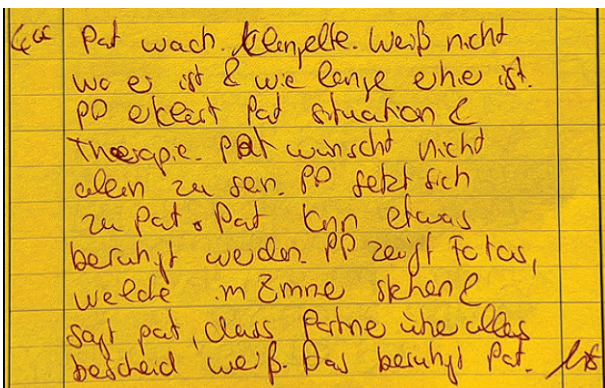 4⁰⁰ Pat wach. klingelte. Weiß nicht
wo er ist & wie lange er hier ist.
PP erklärt Pat situation &
Therapie. PAt wünscht nicht
allein zu sein. PP setzt sich
zu Pat. Pat kann etwas
beruhigt werden. PP zeigt Fotos,
welche im Zimmer stehen &
sagt pat, dass Partner über alles
bescheid weiß. Das beruhigt Pat.